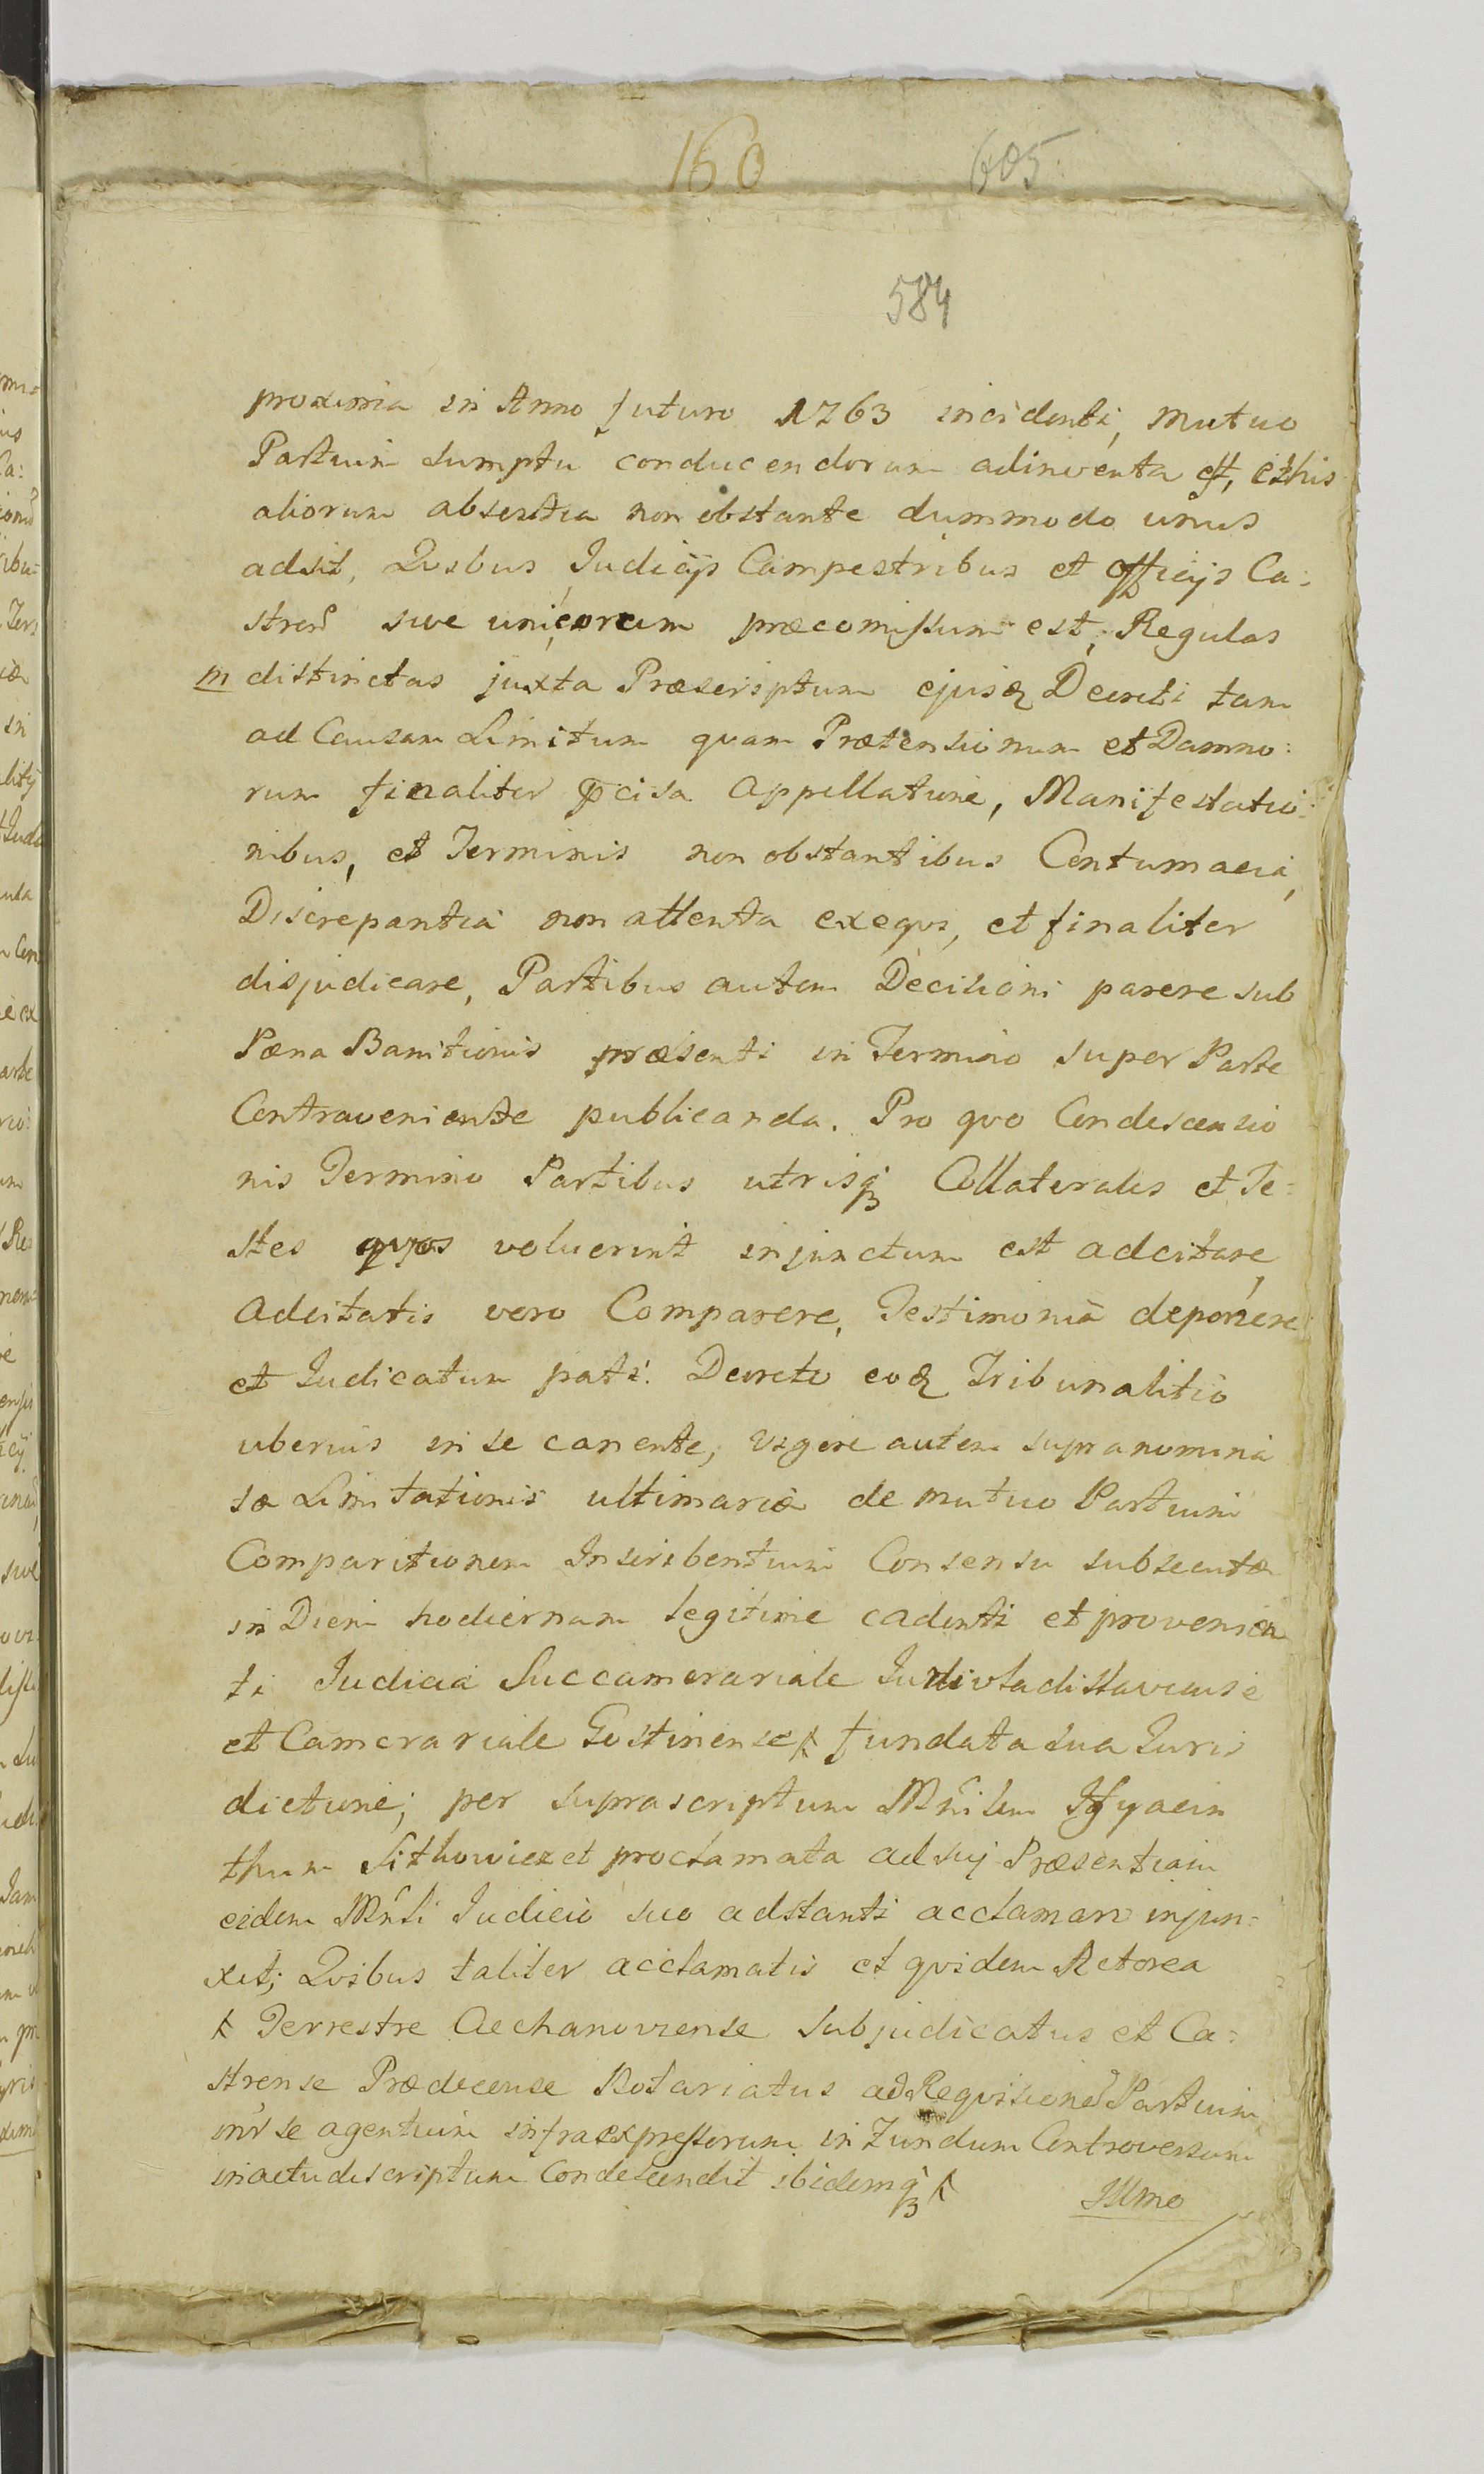 160
605
584
proxima in Anno futuro 1763 incidenti, mutuo
Partium sumptu conducendorum adinventa est, ex his
aliorum absentia non obstante dummodo unus
adsit, Qvibus Judicijs Campestribus et Officijs Ca:
stren sive unicorum præcomissum est, Regulas
m distinctas juxta Præscriptum ejusq Decreti tam
ad Causam Limitum quam Prætensionum et Damno:
rum finaliter pcisa Appellatione, Manifestatio:
nibus, et Terminis non obstantibus Contumacia,
Discrepantia non attenta exeqvi, et finaliter
disjudicare, Partibus autem Decisioni parere sub
Pæna Banitionis præsenti in Termino super Parte
Contraveniente publicanda. Pro qvo Condescensio
nis Termino Partibus utrisqȝ Collaterales et Te:
stes qvos voluerint injunctum est adcitare,
Adcitatis vero Comparere, Testimonia deponere
et Judicatum pati. Decreto eoq Tribunalitio
uberius in se canente, Vigore autem supranomina
tæ Limitationis ultimariæ de mutuo Partium
Comparitionem Inscribentium Consensu subsecutæ
in Diem hodiernam legitime cadenti et provenien
ti Judicia Succamerariale
et Camerariale Gostinense fundata sua Juris
dictione, per suprascriptum Mnrlem Hyacin
thum Sithowicz et proclamata ad suj Præsentiam
eidem Mnrli Judicio suo adstanti acclamari injun:
xit; Qvibus taliter acclamatis et qvidem Actorea
Terrestre Ciechanoviense Subjudicatus et Ca:
strense Prædecense Notariatus ad Reqvisitione Partium
inr se agentium infraexpressorum in Fundum Controversum
in actu descriptum Condescendit ibidemqȝ
Illmo